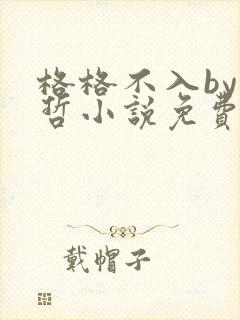 格格不入by
哲小說免費
戴帽子